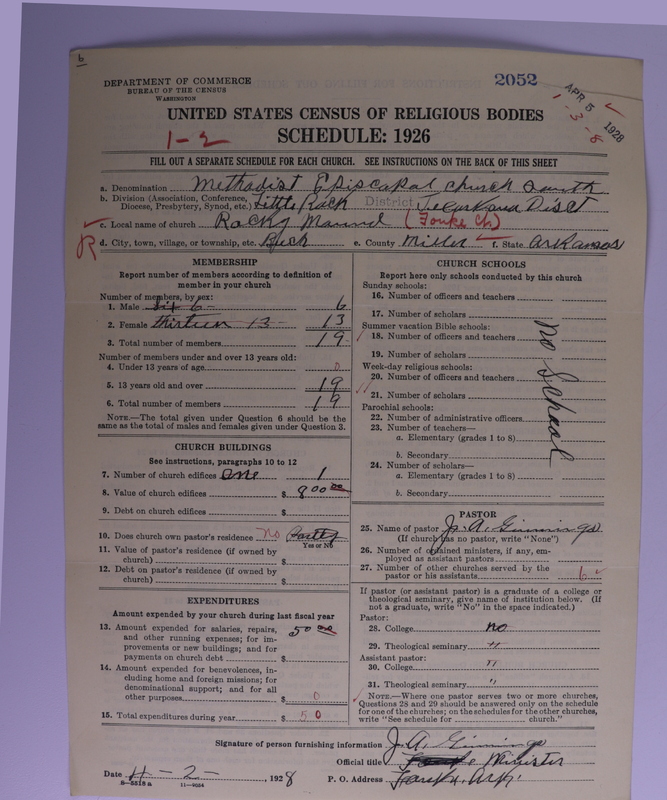 6
DEPARTMENT OF COMMERCE
BUREAU OF THE CENSUS
WASHINGTON
2052
APR 5 1928
1-3-8
UNITED STATES CENSUS OF RELIGIOUS BODIES
1-2
SCHEDULE: 1926
FILL OUT A SEPARATE SCHEDULE FOR EACH CHURCH. SEE INSTRUCTIONS ON THE BACK OF THIS SHEET
a. Denomination Methodist Episcapal church South
b. Division (Association, Conference, Diocese, Presbytery, Synod, etc.) Little Rock District Texarkana Dist
c. Local name of church Rocky Mound (Fouke Ch)
R
d. City, town, village, or township, etc. e. County Miller f. State Arkansas
MEMBERSHIP
Report number of members according to definition of
member in your church
Number of members, by sex:
1. Male six 6 6
2. Female thirteen 13 13
3. Total number of members 19
Number of members under and over 13 years old:
4. Under 13 years of age 0
5. 13 years old and over 19
6. Total number of members 19
NOTE.—The total given under Question 6 should be the
same as the total of males and females given under Question 3.
CHURCH BUILDINGS
See instructions, paragraphs 10 to 12
7. Number of church edifices one 1
8. Value of church edifices $ 800 00
9. Debt on church edifices $
10. Does church own pastor's residence? No Partly
Yes or No
11. Value of pastor's residence (if owned by
church) $
12. Debt on pastor's residence (if owned by
church) $
EXPENDITURES
Amount expended by your church during last fiscal year
13. Amount expended for salaries, repairs, 50 00
and other running expenses; for im-
provements or new buildings; and for
payments on church debt $
14. Amount expended for benevolences, in-
cluding home and foreign missions; for
denominational support; and for all
other purposes $ 0
15. Total expenditures during year $ 50
CHURCH SCHOOLS
Report here only schools conducted by this church
Sunday schools:
16. Number of officers and teachers
17. Number of scholars
Summer vacation Bible schools:
18. Number of officers and teachers
19. Number of scholars
Week-day religious schools:
20. Number of officers and teachers
21. Number of scholars
Parochial schools:
22. Number of administrative officers
23. Number of teachers—
a. Elementary (grades 1 to 8)
b. Secondary
24. Number of scholars—
a. Elementary (grades 1 to 8)
b. Secondary
No School
PASTOR
25. Name of pastor J. A. Ginnings
(If church has no pastor, write "None")
26. Number of ordained ministers, if any, em-
ployed as assistant pastors
27. Number of other churches served by the
pastor or his assistants 6
If pastor (or assistant pastor) is a graduate of a college or
theological seminary, give name of institution below. (If
not a graduate, write "No" in the space indicated.)
Pastor:
28. College no
29. Theological seminary "
Assistant pastor:
30. College "
31. Theological seminary "
NOTE.—Where one pastor serves two or more churches,
Questions 28 and 29 should be answered only on the schedule
for one of the churches; on the schedules for the other churches,
write "See schedule for church."
Signature of person furnishing information J. A. Ginnings
Official title Minister
Date 4-2-, 1928
P. O. Address Fouke, Ark.
8-5518a 11-9034